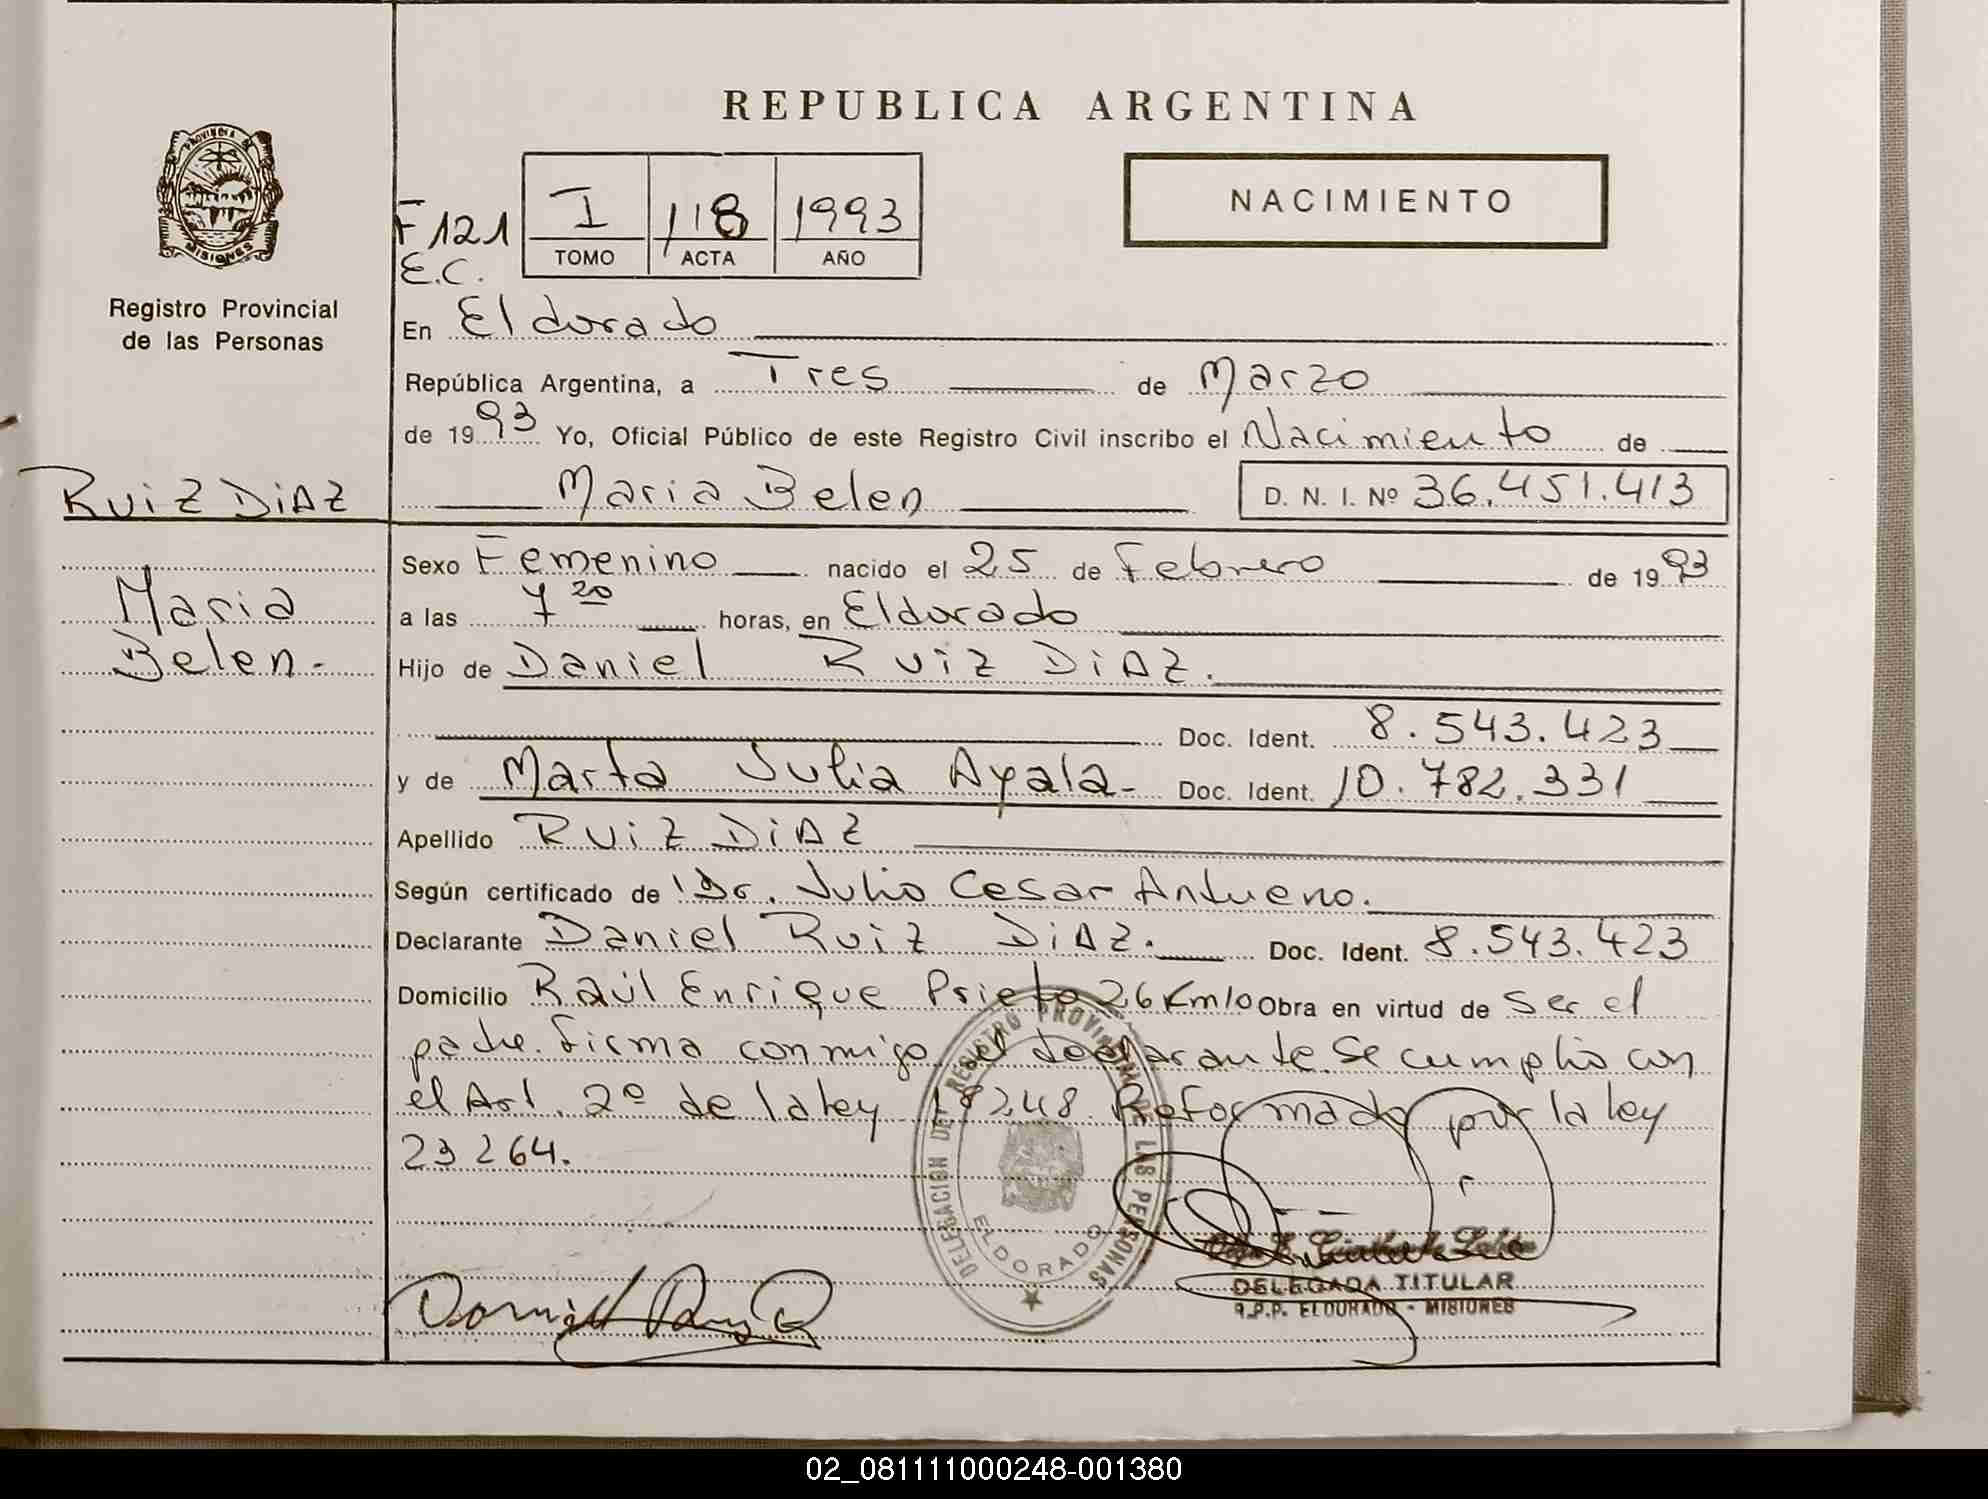 REPUBLICA ARGENTINA
PROVINCIA DE
MISIONES
Registro Provincial
de las Personas
F 121
E.C.
I 118 1993
TOMO ACTA AÑO
NACIMIENTO
En Eldorado
República Argentina, a Tres de Marzo
de 1993 Yo, Oficial Público de este Registro Civil inscribo el Nacimiento de
RUIZ DIAZ
Maria Belen D. N. I. Nº 36.451.413
Sexo Femenino nacido el 25 de Febrero de 1993
Maria
Belen.-
a las 7 20 horas, en Eldorado
Hijo de Daniel RUIZ DIAZ.
Doc. Ident. 8.543.423
y de Marta Julia Ayala- Doc. Ident. 10.782.331
Apellido RUIZ DIAZ
Según certificado de Dr. Julio Cesar Antueno.
Declarante Daniel Ruiz DIAZ. Doc. Ident. 8.543.423
Domicilio Raúl Enrique Prieto 26 Km10 Obra en virtud de ser el
padre. firma conmigo el declarante. Se cumplio con
el Art. 2º de la ley 18248 Reformado por la ley
23264.
DELEGACION DEL REGISTRO PROVINCIAL DE LAS PERSONAS
ELDORADO
DELEGADA TITULAR
R.P.P. ELDORADO - MISIONES
02_081111000248-001380